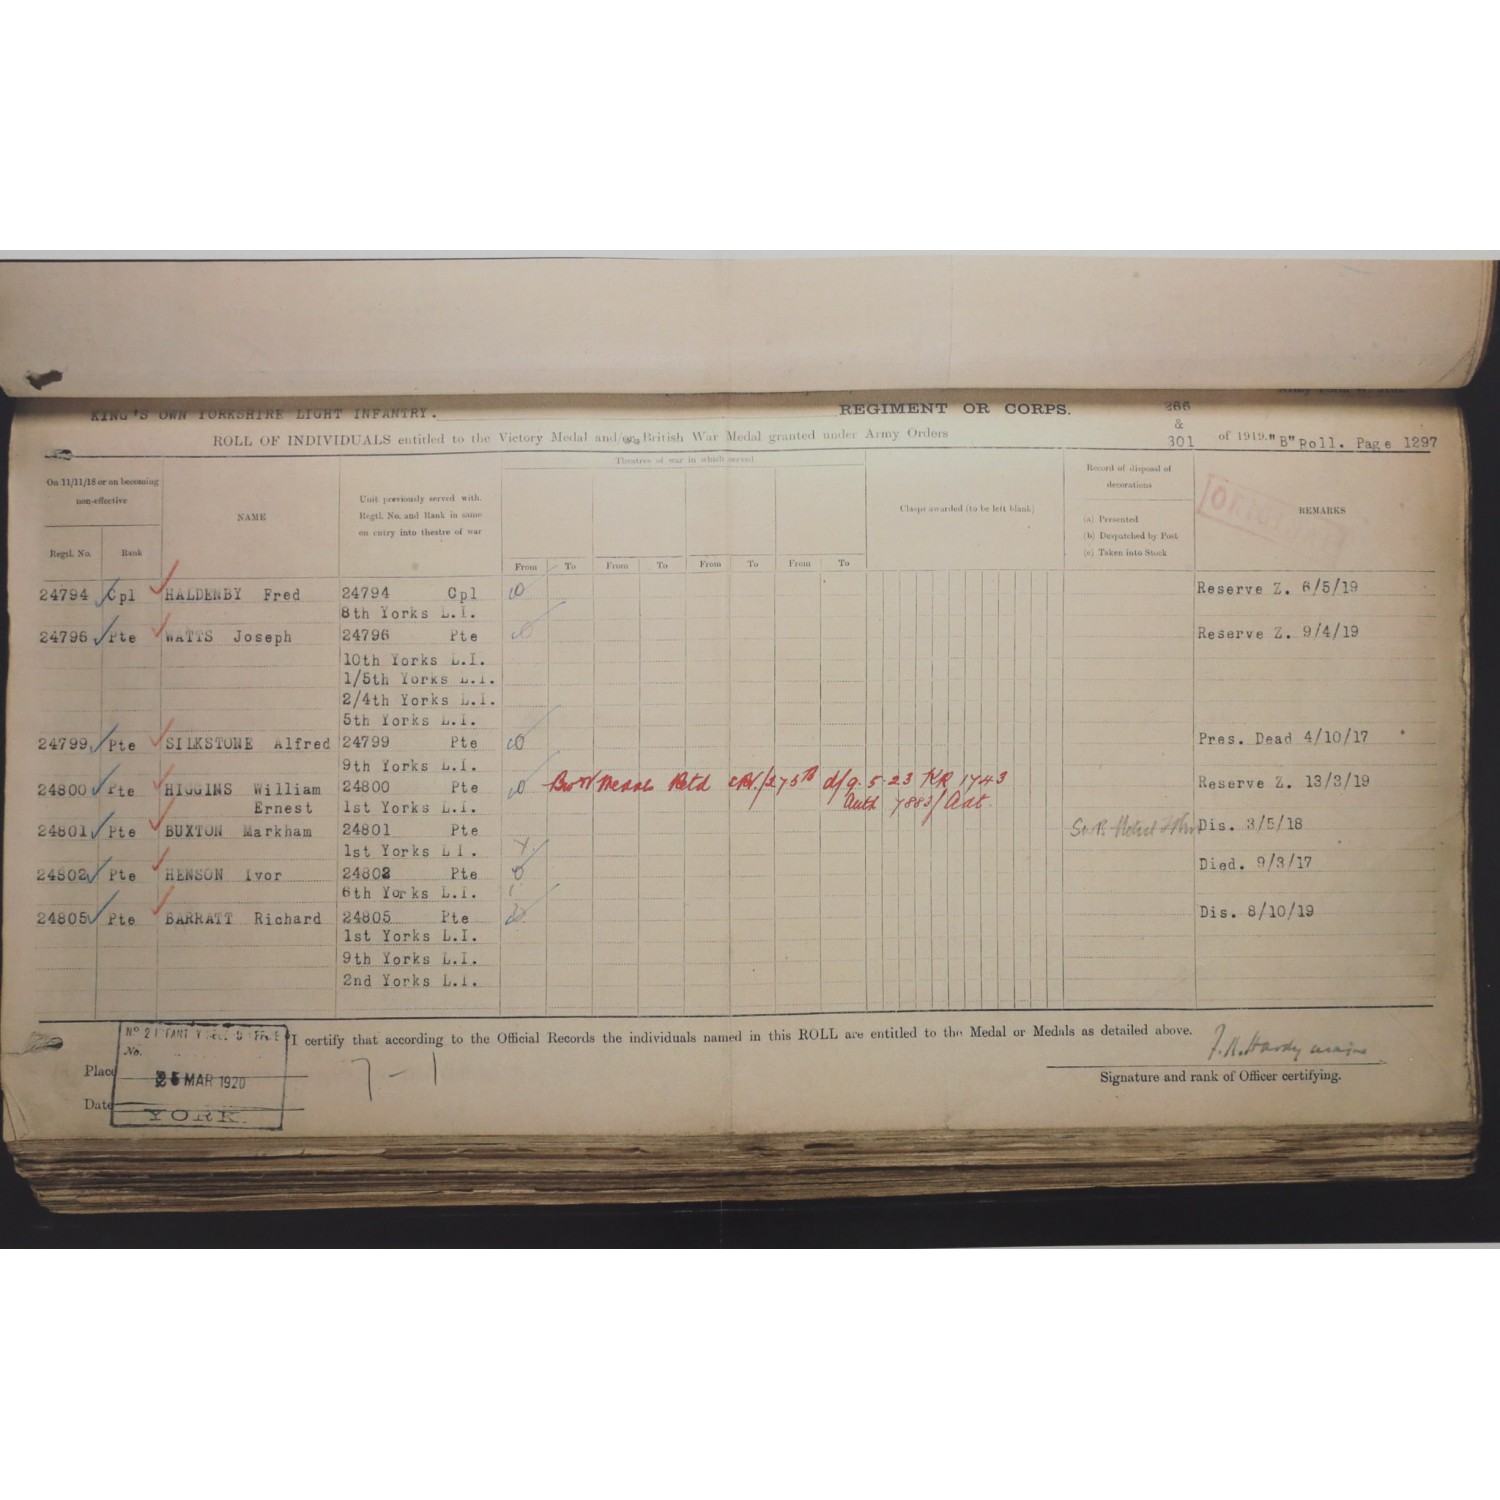 KING'S OWN YORKSHIRE LIGHT INFANTRY. REGIMENT OR CORPS. 266
&
ROLL OF INDIVIDUALS entitled to the Victory Medal and/or British War Medal granted under Army Orders 301 of 1919. "B" Roll. Page 1297
Theatres of war in which served
On 11/11/18 or on becoming non-effective
NAME
Unit previously served with. Regtl. No. and Rank in same on entry into theatre of war
Clasps awarded (to be left blank)
Record of disposal of decorations
(a) Presented
(b) Despatched by Post
(c) Taken into Stock
REMARKS
Regtl. No. Rank
From To From To From To From To
24794 Cpl HALDENBY Fred 24794 Cpl Reserve Z. 6/5/19
8th Yorks L.I.
24796 Pte WATTS Joseph 24796 Pte Reserve Z. 9/4/19
10th Yorks L.I.
1/5th Yorks L.I.
2/4th Yorks L.I.
5th Yorks L.I.
24799 Pte SILKSTONE Alfred 24799 Pte Pres. Dead 4/10/17
9th Yorks L.I.
24800 Pte HIGGINS William 24800 Pte Medals Retd d/9.5.23 KR 1743 Reserve Z. 13/3/19
Ernest 1st Yorks L.I. Auth 7883/Adt.
24801 Pte BUXTON Markham 24801 Pte Dis. 3/5/18
1st Yorks L I.
24802 Pte HENSON Ivor 24802 Pte Died. 9/3/17
6th Yorks L.I.
24805 Pte BARRATT Richard 24805 Pte Dis. 8/10/19
1st Yorks L.I.
9th Yorks L.I.
2nd Yorks L.I.
I certify that according to the Official Records the individuals named in this ROLL are entitled to the Medal or Medals as detailed above.
No.
Place
25 MAR 1920
7 - 1
Date
YORK.
Signature and rank of Officer certifying.